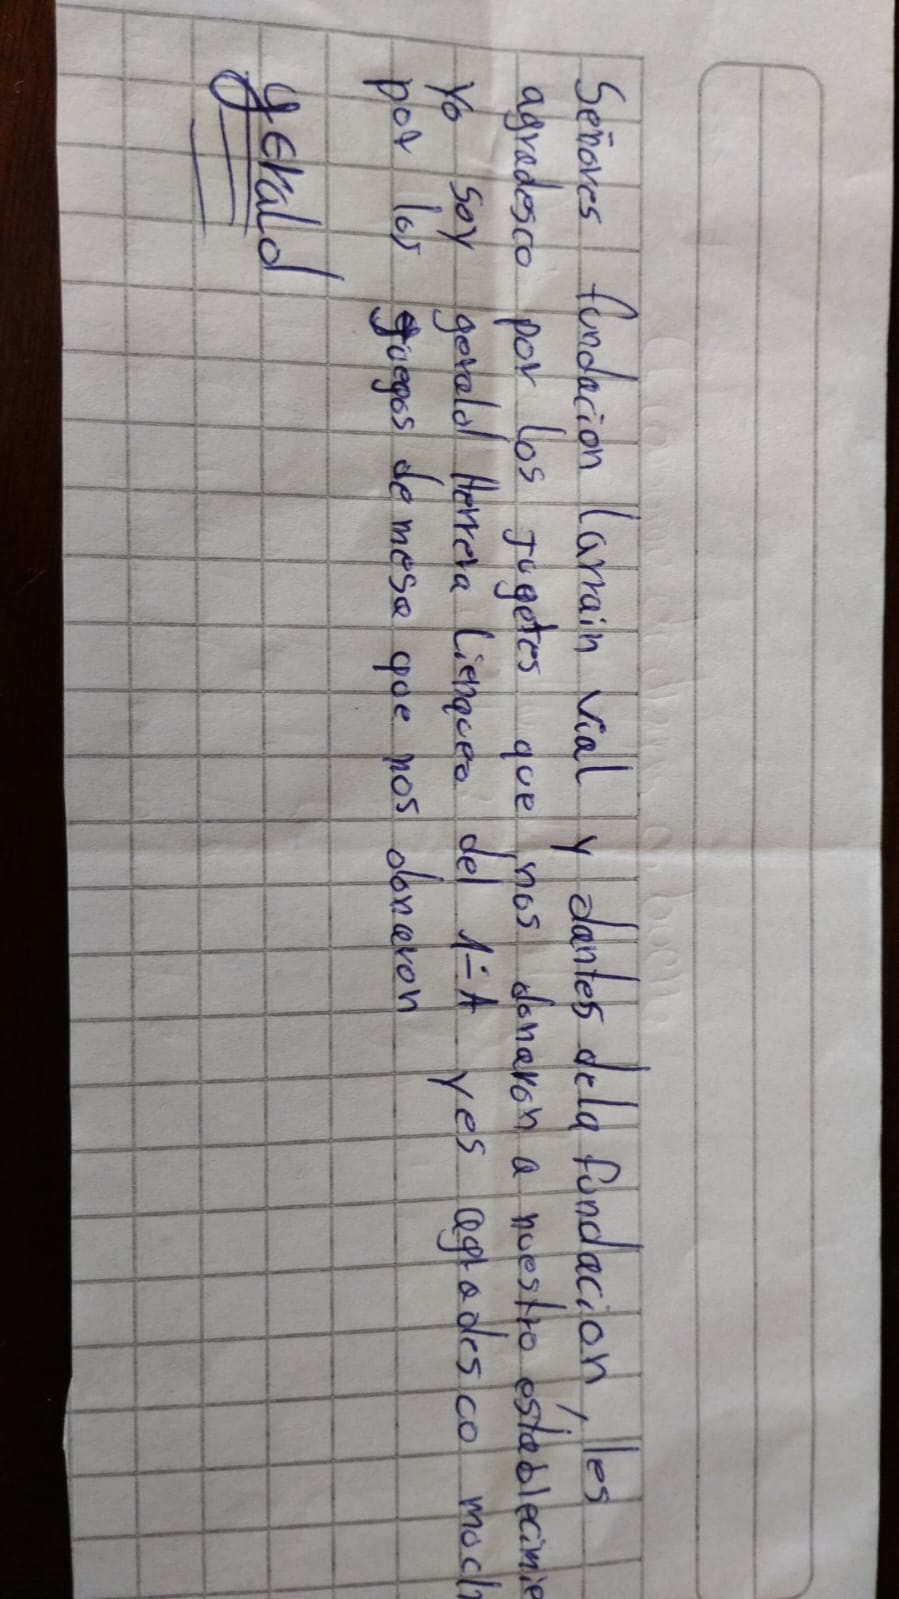 Señores fundacion Larrain Vial y dantes dela fundacion, les
agradesco por los jugetes que nos donaron a nuestro establecimie
Yo soy gerald Herrera Lienqueo del 1-A yes agradesco moch
por los juegos de mesa que nos donaron
gerald